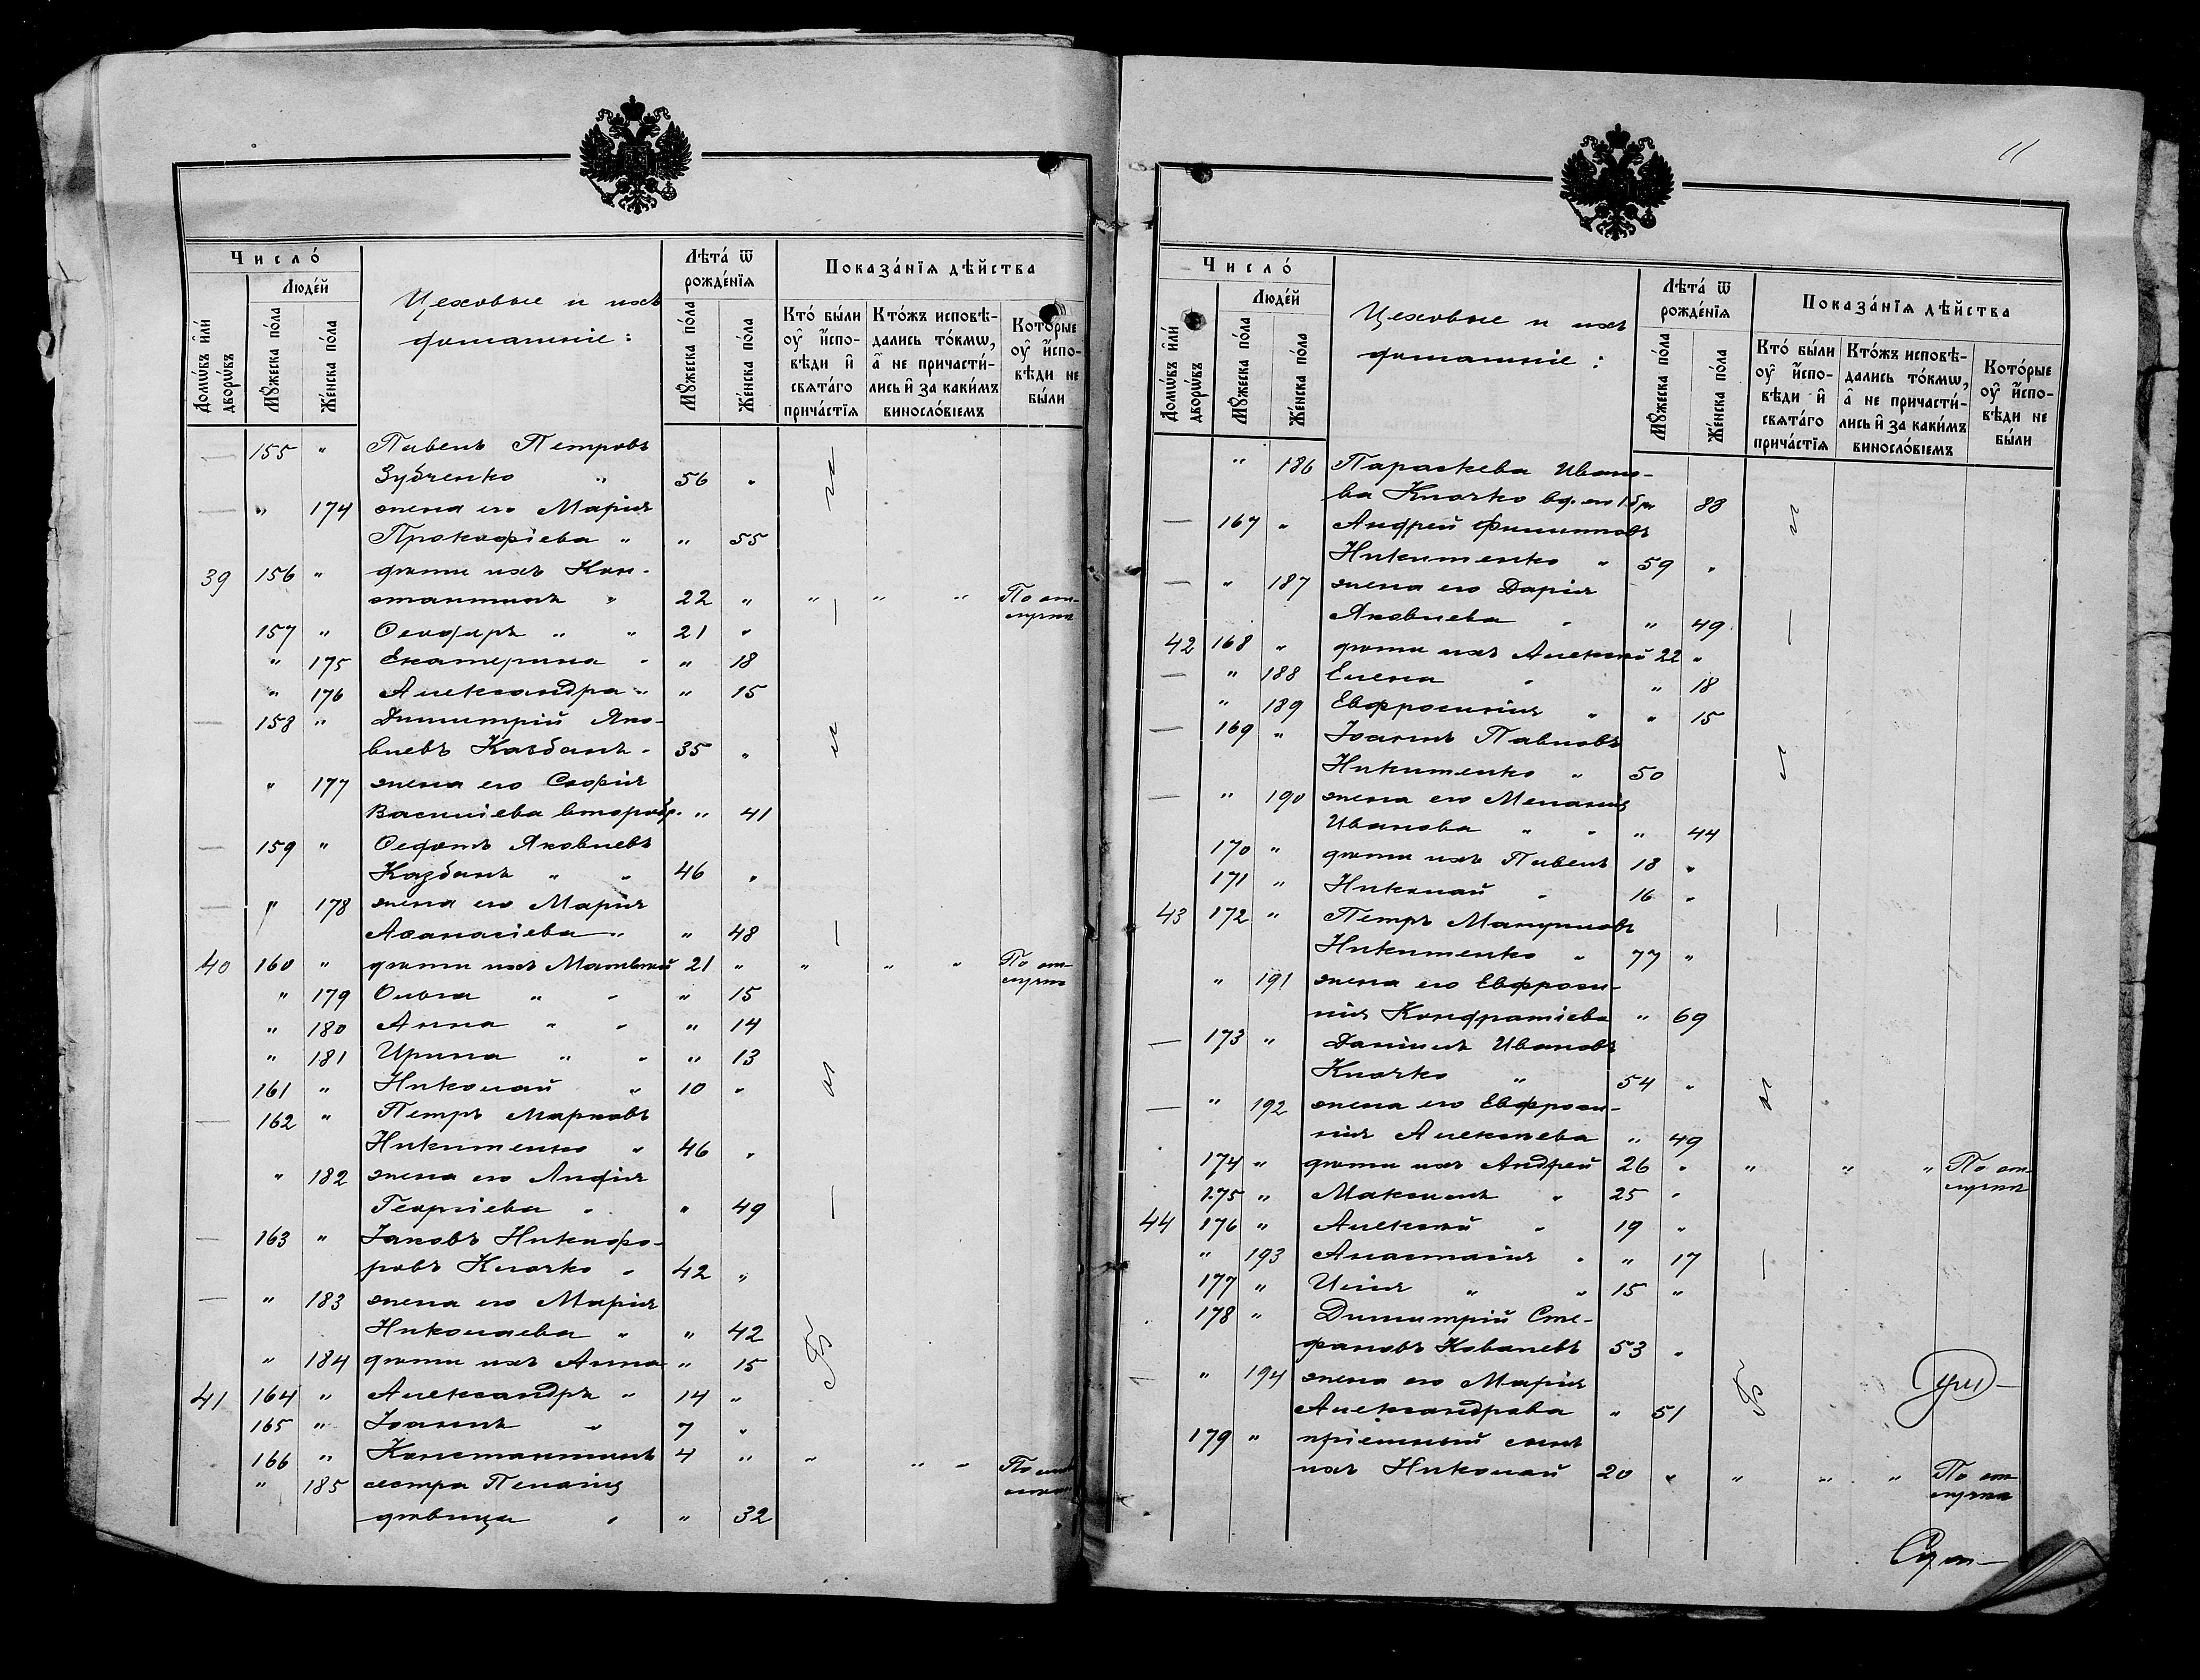 Число́
Люде́й
Домѡ́въ и҆лѝ дворѡ́въ
Мꙋ́жеска по́ла
Же́нска по́ла
Цеховые и ихъ
домашніе:
Лѣта̀ ѿ
рожде́нїѧ
Мꙋ́жеска по́ла
Же́нска по́ла
Показа́нїѧ дѣ́йства
Кто̀ бы́ли
оу҆ и҆спо-
вѣди и҆
свѧта́го
прича́стїѧ
Кто́жъ исповѣ-
дались то́кмѡ,
а҆ не причасти́-
лись и҆ за каки́мъ
винослόвіемъ
Кото́рые
оу҆ и҆спо-
вѣди не
бы́ли
155 " Павелъ Петровъ
Зубченко " 56 "
" 174 жена его Марія
Прокофіева " " 55
39 156 " дѣти ихъ Кон-
стантинъ " 22 " " " " По от-
лучкѣ
157 " Ѳеодоръ " " 21 "
" 175 Екатерина " " 18
" 176 Александра " " 15
158 " Димитрій Яко-
влевъ Казбанъ " 35 "
" 177 жена его Софія
Василіева второбр. " 41
159 " Ѳедотъ Яковлевъ
Казбанъ " " 46 "
" 178 жена его Марія
Аѳанасіева " " 48
40 160 " дѣти ихъ Матѳей 21 " " " " По от-
лучкѣ
" 179 Ольга " " " 15
" 180 Анна " " " 14
" 181 Ирина " " " 13
161 " Николай " 10 "
162 " Петръ Марковъ
Никитенко " 46 "
" 182 жена его Анфія
Георгіева " " 49
163 " Іаковъ Никифо-
ровъ Клочко " 42 "
" 183 жена его Марія
Николаева " " 42
" 184 дѣти ихъ Анна " 15
41 164 " Александръ " 14 "
165 " Іоаннъ " 7 "
166 " Константинъ 4 " " " "
" 185 сестра Пелагія
дѣвица " " 32
11
Число́
Люде́й
Домѡ́въ и҆лѝ дворѡ́въ
Мꙋ́жеска по́ла
Же́нска по́ла
Цеховые и ихъ
домашніе:
Лѣта̀ ѿ
рожде́нїѧ
Мꙋ́жеска по́ла
Же́нска по́ла
Показа́нїѧ дѣ́йства
Кто̀ бы́ли
оу҆ и҆спо-
вѣди и҆
свѧта́го
прича́стїѧ
Кто́жъ исповѣ-
дались то́кмѡ,
а҆ не причасти́-
лись и҆ за каки́мъ
винослόвіемъ
Кото́рые
оу҆ и҆спо-
вѣди не
бы́ли
" 186 Параскева Ивано-
ва Клочко вд. 88
167 " Андрей Филипповъ
Никитенко " 59 "
" 187 жена его Дарія
Яковлева " " 49
42 168 " дѣти ихъ Алексѣй 22 "
" 188 Елена " " 18
" 189 Евфросинія " " 15
169 " Іоаннъ Павловъ
Никитенко " 50
" 190 жена его Меланія
Иванова " " " 44
170 " дѣти ихъ Павелъ 18 "
171 " Николай " 16 "
43 172 " Петръ
Никитенко " 77 "
" 191 жена его Евфроси-
нія Кондратіева " 69
173 " Даніилъ Ивановъ
Клочко " 54 "
" 192 жена его Евфроси-
нія Алексѣева " 49
174 " дѣти ихъ Андрей 26 " " " " По от-
лучкѣ
175 " Максимъ " 25 "
44 176 " Алексѣй " 19 "
" 193 Анастасія " " 17
177 " Илія " " 15 "
178 " Димитрій Сте-
фановъ Ковалевъ 53 "
" 194 жена его Марія
Александрова " 51
179 " пріемный сынъ
ихъ Николай 20 " " " " По от-
лучкѣ